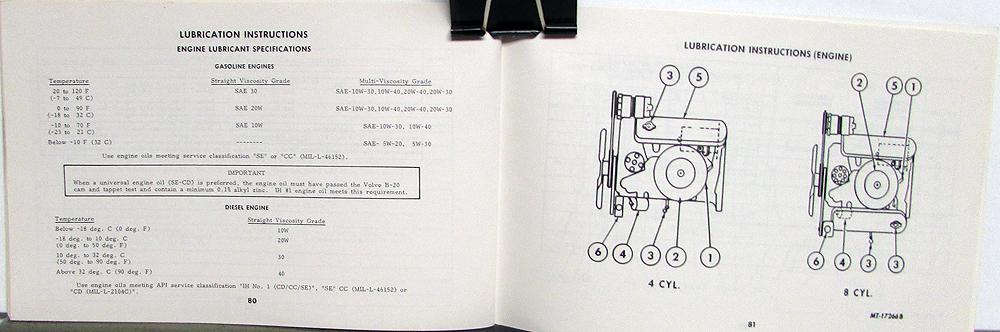 LUBRICATION INSTRUCTIONS
ENGINE LUBRICANT SPECIFICATIONS
GASOLINE ENGINES
Temperature Straight Viscosity Grade Multi-Viscosity Grade
20 to 120 F SAE 30 SAE-10W-30,10W-40,20W-40,20W-30
(-7 to 49 C)
0 to 90 F SAE 20W SAE-10W-30,10W-40,20W-40,20W-30
(-18 to 32 C)
-10 to 70 F SAE 10W SAE-10W-30, 10W-40
(-23 to 21 C)
Below -10 F (32 C) -------- SAE- 5W-20, 5W-30
Use engine oils meeting service classification "SE" or "CC" (MIL-L-46152).
IMPORTANT
When a universal engine oil (SE-CD) is preferred, the engine oil must have passed the Volvo B-20
cam and tappet test and contain a minimum 0.1% alkyl zinc. IH #1 engine oil meets this requirement.
DIESEL ENGINE
Temperature Straight Viscosity Grade
Below -18 deg. C (0 deg. F) 10W
-18 deg. to 10 deg. C 20W
(0 deg. to 50 deg. F)
10 deg. to 32 deg. C 30
(50 deg. to 90 deg. F)
Above 32 deg. C (90 deg. F) 40
Use engine oils meeting API service classification "IH No. 1 (CD/CC/SE)", "SE" CC (MIL-L-46152) or
"CD (MIL-L-2104C)".
80
LUBRICATION INSTRUCTIONS (ENGINE)
3 5
6 4 3 2 1
4 CYL.
2 5 1
6 4 3 3
8 CYL.
MT-17266B
81